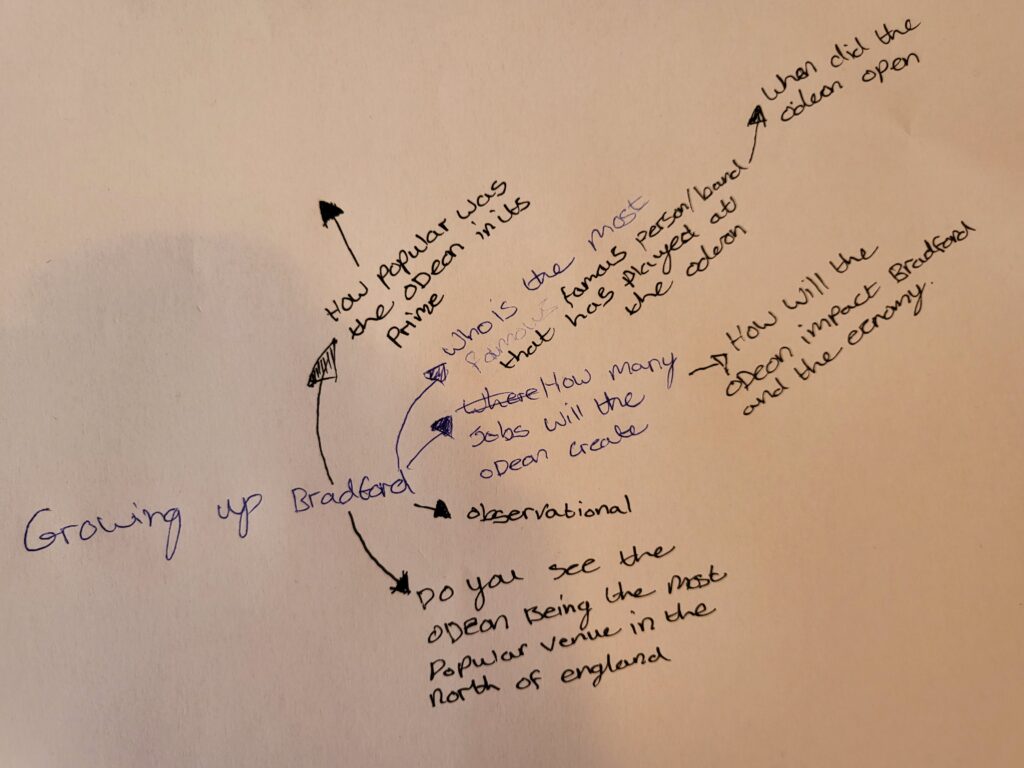 Growing up Bradford
How popular was
the ODeon in its
Prime
Who is the most
famous famous person/band
that has played at
the odeon
When did the
odeon open
Where How many
Jobs will the
ODeon create
How will the
ODeon impact Bradford
and the economy.
observational
Do you see the
ODeon Being the most
Popular venue in the
north of england